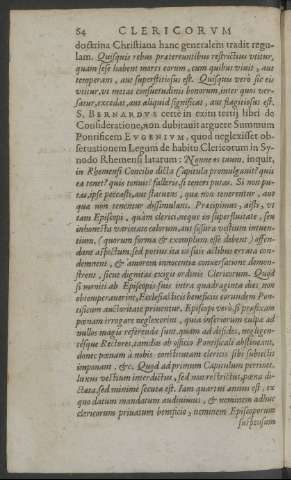 84 CLERICORVM
doctrina Christiana hanc generalem tradit regu-
lam. Quisquis rebus prætereuntibus restrictius vtitur,
quam sese habent mores eorum, cum quibus viuit, aut
temperans, aut superstitiosus est. Quisquis verò sic eis
vtitur, vt metas consuetudinis bonorum, inter quos ver-
satur, excedat, aut aliquid significat, aut flagitiosus est.
S. BERNARDVS certè in extu tertij libri de
Consideratione, non dubitauit arguere Summum
Pontificem EVGENIVM, quod neglexisset ob-
seruationem Legum de habitu Clericorum in Sy-
nodo Rhemensi latarum: Nonne os tuum, inquit,
in Rhemensi Concilio dicta Capitula promulgauit? quis
ea tenet? quis tenuit? falleris, si teneri putas. Si non pu-
tas, ipse peccasti, aut statuens, quæ non tenerentur, aut
quia non teneantur dissimulans. Præcipimus, aisti, vt
tam Episcopi, quàm clerici, neque in superfluitate, seu
inhonesta varietate colorum, aut fissura vestium intuen-
tium, (quorum forma & exemplum esse debent) offen-
dant aspectum, sed potius ita vt suis actibus errata con-
demnent, & amorem innocentiæ conuersatione demon-
strent, sicut dignitas exigit ordinis Clericorum. Quòd
si moniti ab Episcopis suis intra quadraginta dies non
obtemperauerint, Ecclesiasticis beneficiis eorundem Pon-
tificum auctoritate priuentur. Episcopi verò, si præfixam
pœnam irrogare neglexerint, quia inferiorum culpæ ad
nullos magis referendæ sunt, quàm ad desides, negligen-
tésque Rectores, tamdiu ab officio Pontificali abstineant,
donec pœnam à nobis constitutam clericis sibi subiectis
imponant. &c. Quod ad primum Capitulum pertinet,
luxus vestium interdictus, sed non restrictus, pœna di-
ctata, sed minimè secuta est. Iam quartus annus est, ex
quo datum mandatum audiuimus, & neminem adhuc
clericorum priuatum beneficio, neminem Episcoporum
suspensum